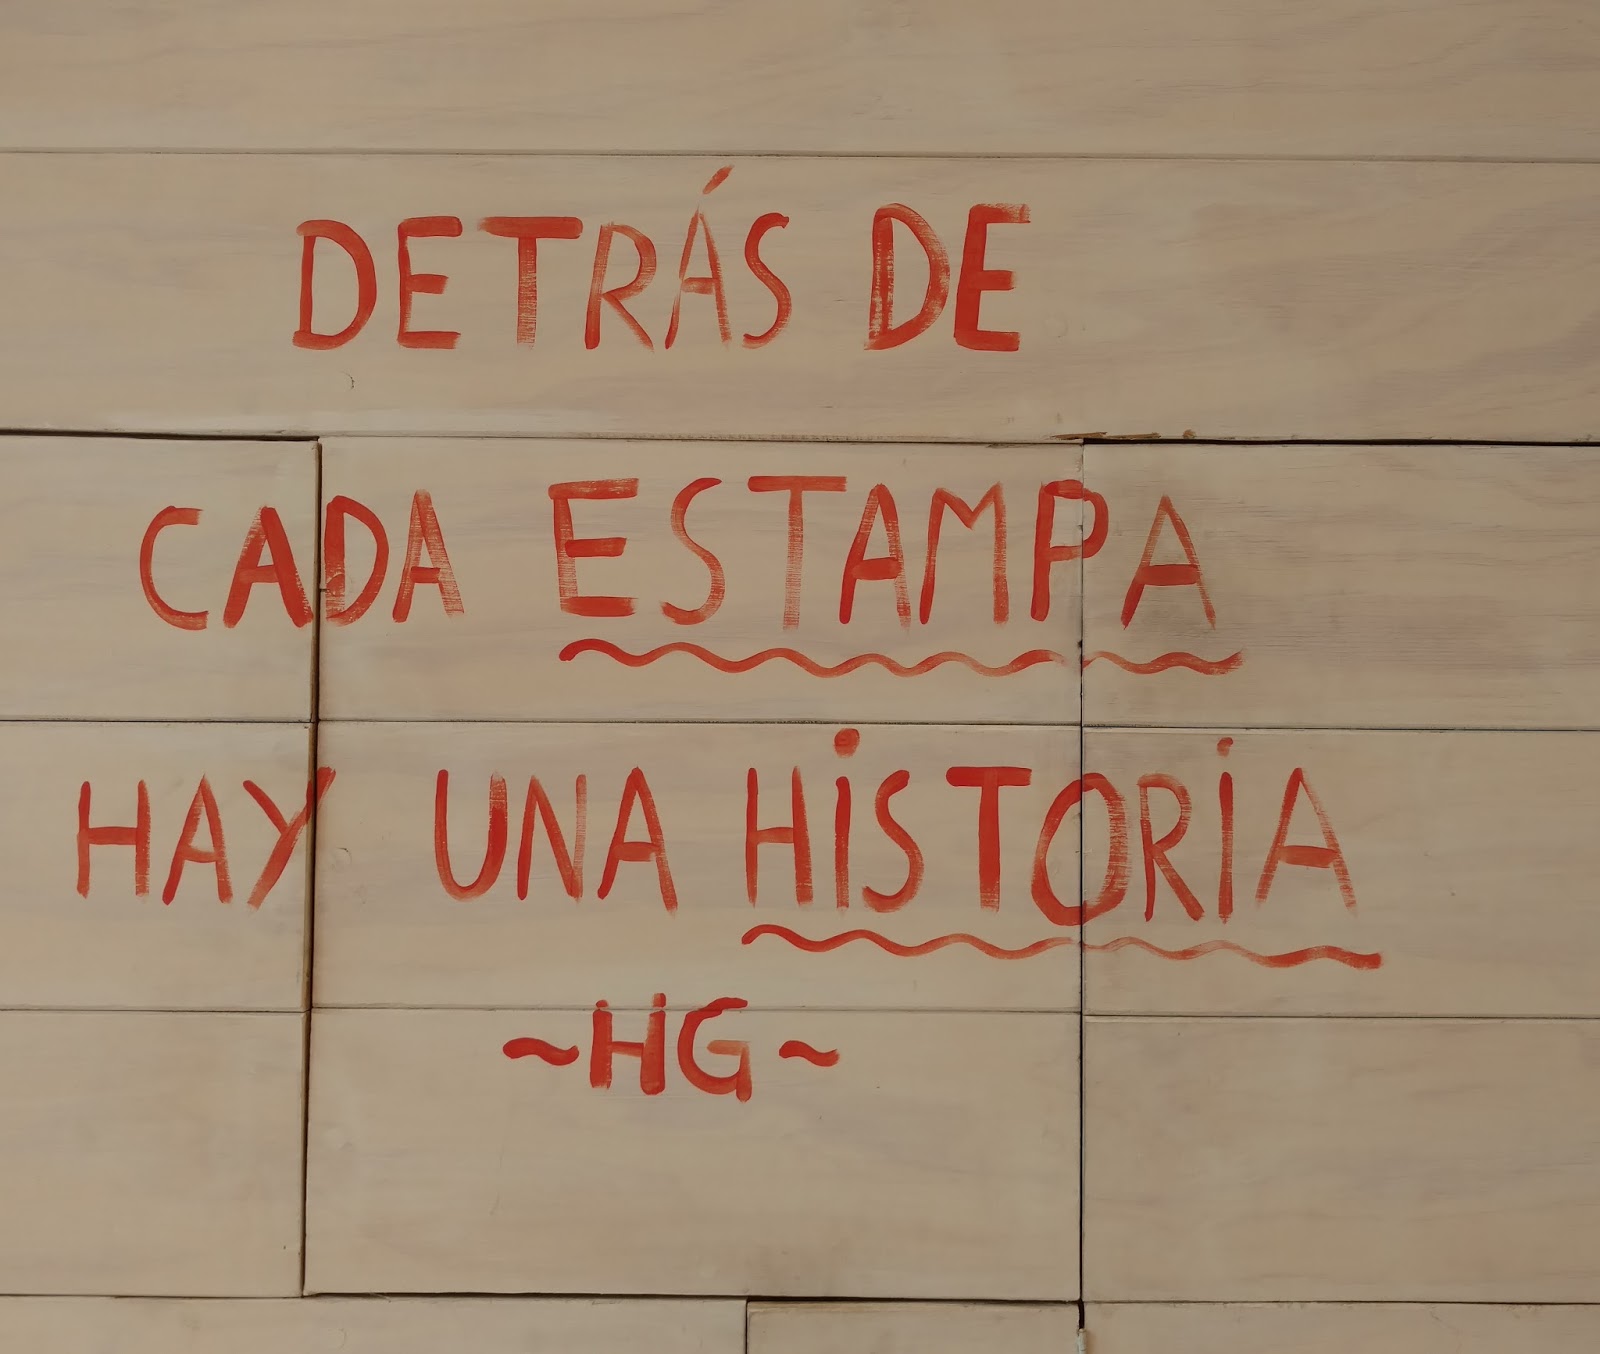 DETRÁS DE
CADA ESTAMPA
HAY UNA HiSTORiA
~HG~